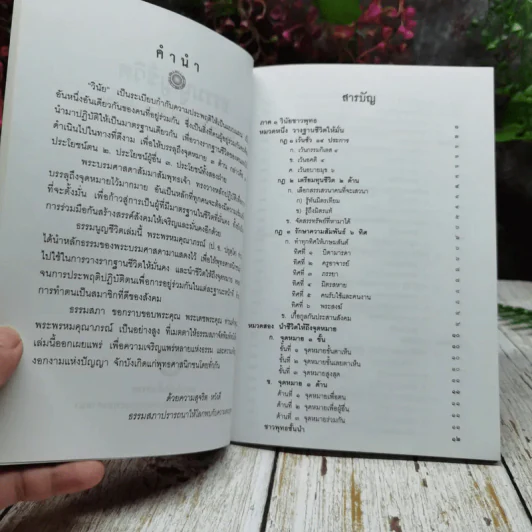 คำนำ
"วินัย" เป็นระเบียบกำกับความประพฤติให้เป็น
อันหนึ่งอันเดียวกันของคนที่อยู่ร่วมกัน ซึ่งเป็นสิ่งที่
นำมาปฏิบัติให้เป็นมาตรฐานเดียวกัน เพื่อวางรากฐานชีวิต
ดำเนินไปในทางที่ดีงาม เพื่อให้บรรลุถึงจุดหมาย ๓ ด้าน
ประโยชน์ตน ๒. ประโยชน์ผู้อื่น ๓. ประโยชน์ทั้งสองฝ่าย
พระบรมศาสดาสัมมาสัมพุทธเจ้า ทรงวางหลักปฏิบัติ
บรรลุถึงจุดหมายไว้มากมาย อันเป็นหลักที่ทุกคนจะต้อง
ที่จะตั้งมั่น เพื่อก้าวสู่การเป็นผู้ที่มีมาตรฐานในชีวิตที่มั่นคง
การร่วมมือกันสร้างสรรค์สังคมให้เจริญและมั่นคงอีกด้วย
ธรรมนูญชีวิตเล่มนี้ พระพรหมคุณาภรณ์ (ป. อ. ปยุตฺโต)
ได้นำหลักธรรมของพระบรมศาสดามาแสดงไว้ เพื่อให้พุทธ
ไปใช้ในการวางรากฐานชีวิตให้มั่นคง และนำชีวิตให้ถึงจุดหมาย
จนการประพฤติปฏิบัติตนเพื่อการอยู่ร่วมกันในแต่ละฐานะหน้าที่
การทำตนเป็นสมาชิกที่ดีของสังคม
ธรรมสภา ขอกราบขอบพระคุณ พระเดชพระคุณ ท่านเจ้าคุณ
พระพรหมคุณาภรณ์ เป็นอย่างสูง ที่เมตตาให้ธรรมสภาจัดพิมพ์หนังสือ
เล่มนี้ออกเผยแพร่ เพื่อความเจริญแพร่หลายแห่งธรรม และความ
งอกงามแห่งปัญญา จักบังเกิดแก่พุทธศาสนิกชนโดยทั่วกัน
ด้วยความสุจริต หวังดี
ธรรมสภาปรารถนาให้โลกพบกับความสงบสุข
สารบัญ
ภาค ๑ วินัยชาวพุทธ
หมวดหนึ่ง วางฐานชีวิตให้มั่น
กฎ ๑ เว้นชั่ว ๑๔ ประการ
ก. เว้นกรรมกิเลส ๔
ข. เว้นอคติ ๔
ค. เว้นอบายมุข ๖
กฎ ๒ เตรียมทุนชีวิต ๒ ด้าน
ก. เลือกสรรเสวนาคนที่จะเสวนา
๑) รู้ทันมิตรเทียม
๒) รู้ถึงมิตรแท้
ข. จัดสรรทรัพย์ที่หามาได้
กฎ ๓ รักษาความสัมพันธ์ ๖ ทิศ
ก. ทำทุกทิศให้เกษมสันต์
ทิศที่ ๑ บิดามารดา
ทิศที่ ๒ ครูอาจารย์
ทิศที่ ๓ ภรรยา
ทิศที่ ๔ มิตรสหาย
ทิศที่ ๕ คนรับใช้และคนงาน
ทิศที่ ๖ พระสงฆ์
ข. เกื้อกูลกันประสานสังคม
หมวดสอง นำชีวิตให้ถึงจุดหมาย
ก. จุดหมาย ๓ ขั้น
ขั้นที่ ๑ จุดหมายขั้นตาเห็น
ขั้นที่ ๒ จุดหมายขั้นเลยตาเห็น
ขั้นที่ ๓ จุดหมายสูงสุด
ข. จุดหมาย ๓ ด้าน
ด้านที่ ๑ จุดหมายเพื่อตน
ด้านที่ ๒ จุดหมายเพื่อผู้อื่น
ด้านที่ ๓ จุดหมายร่วมกัน
ชาวพุทธชั้นนำ ๑๒